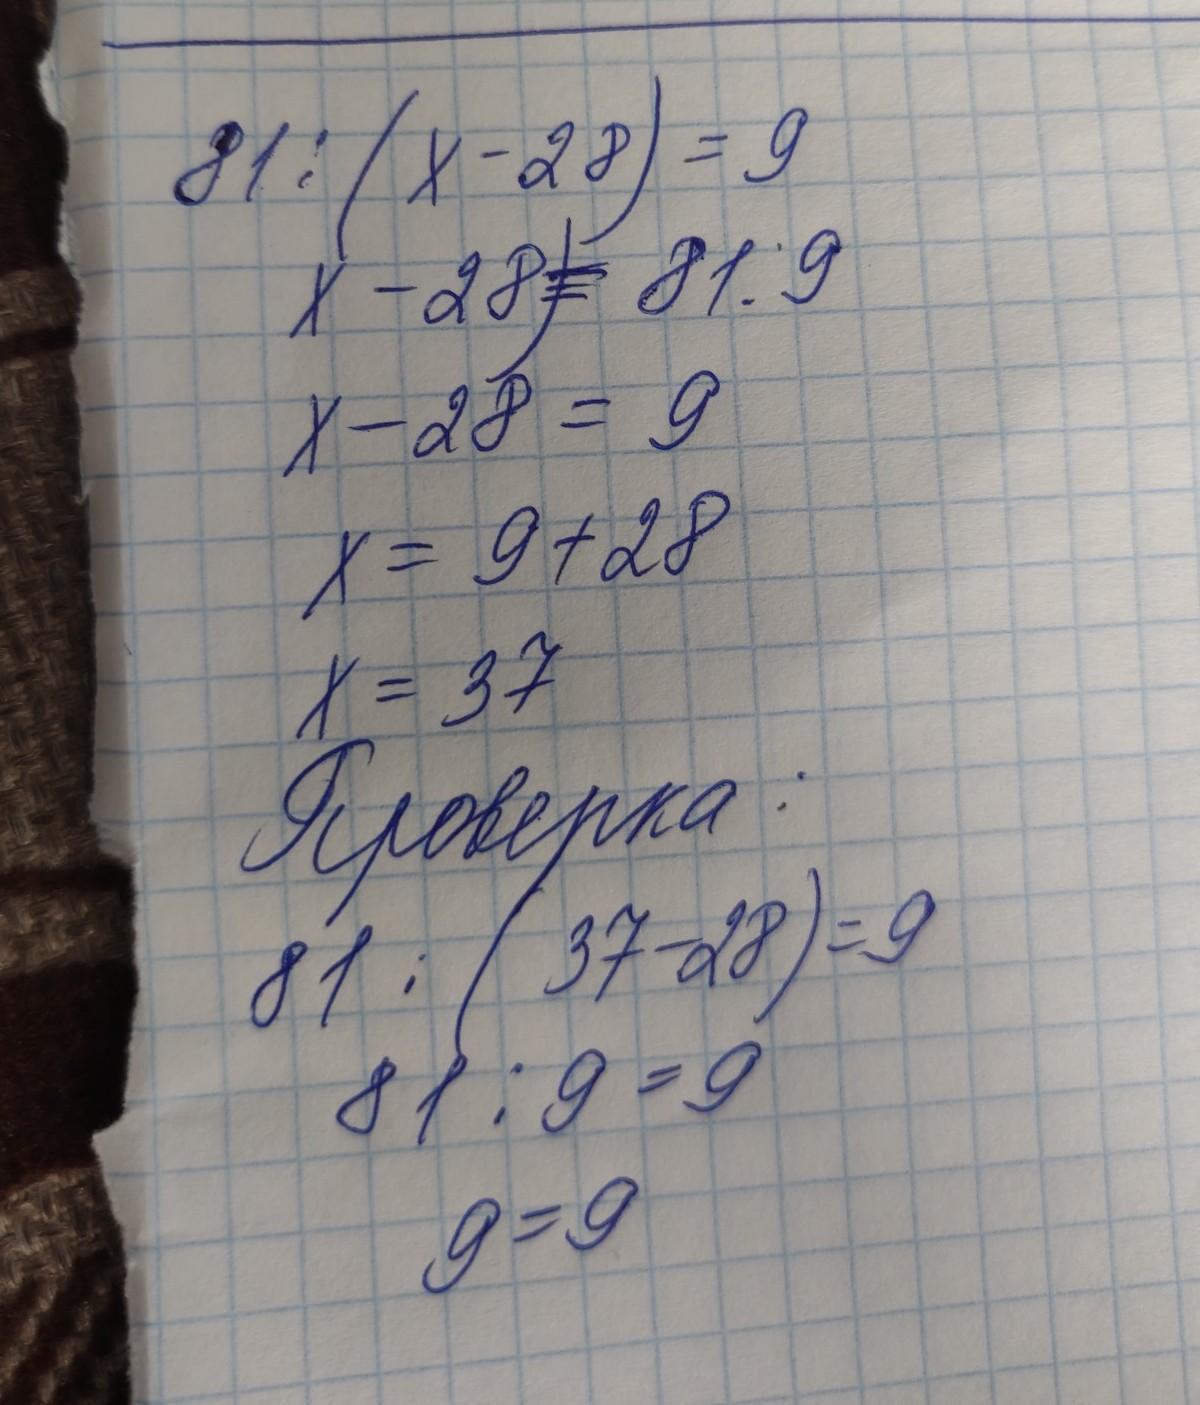 81 : (x - 28) = 9
x - 28) = 81 : 9
x - 28 = 9
x = 9 + 28
x = 37
Проверка :
81 : (37 - 28) = 9
81 : 9 = 9
9 = 9